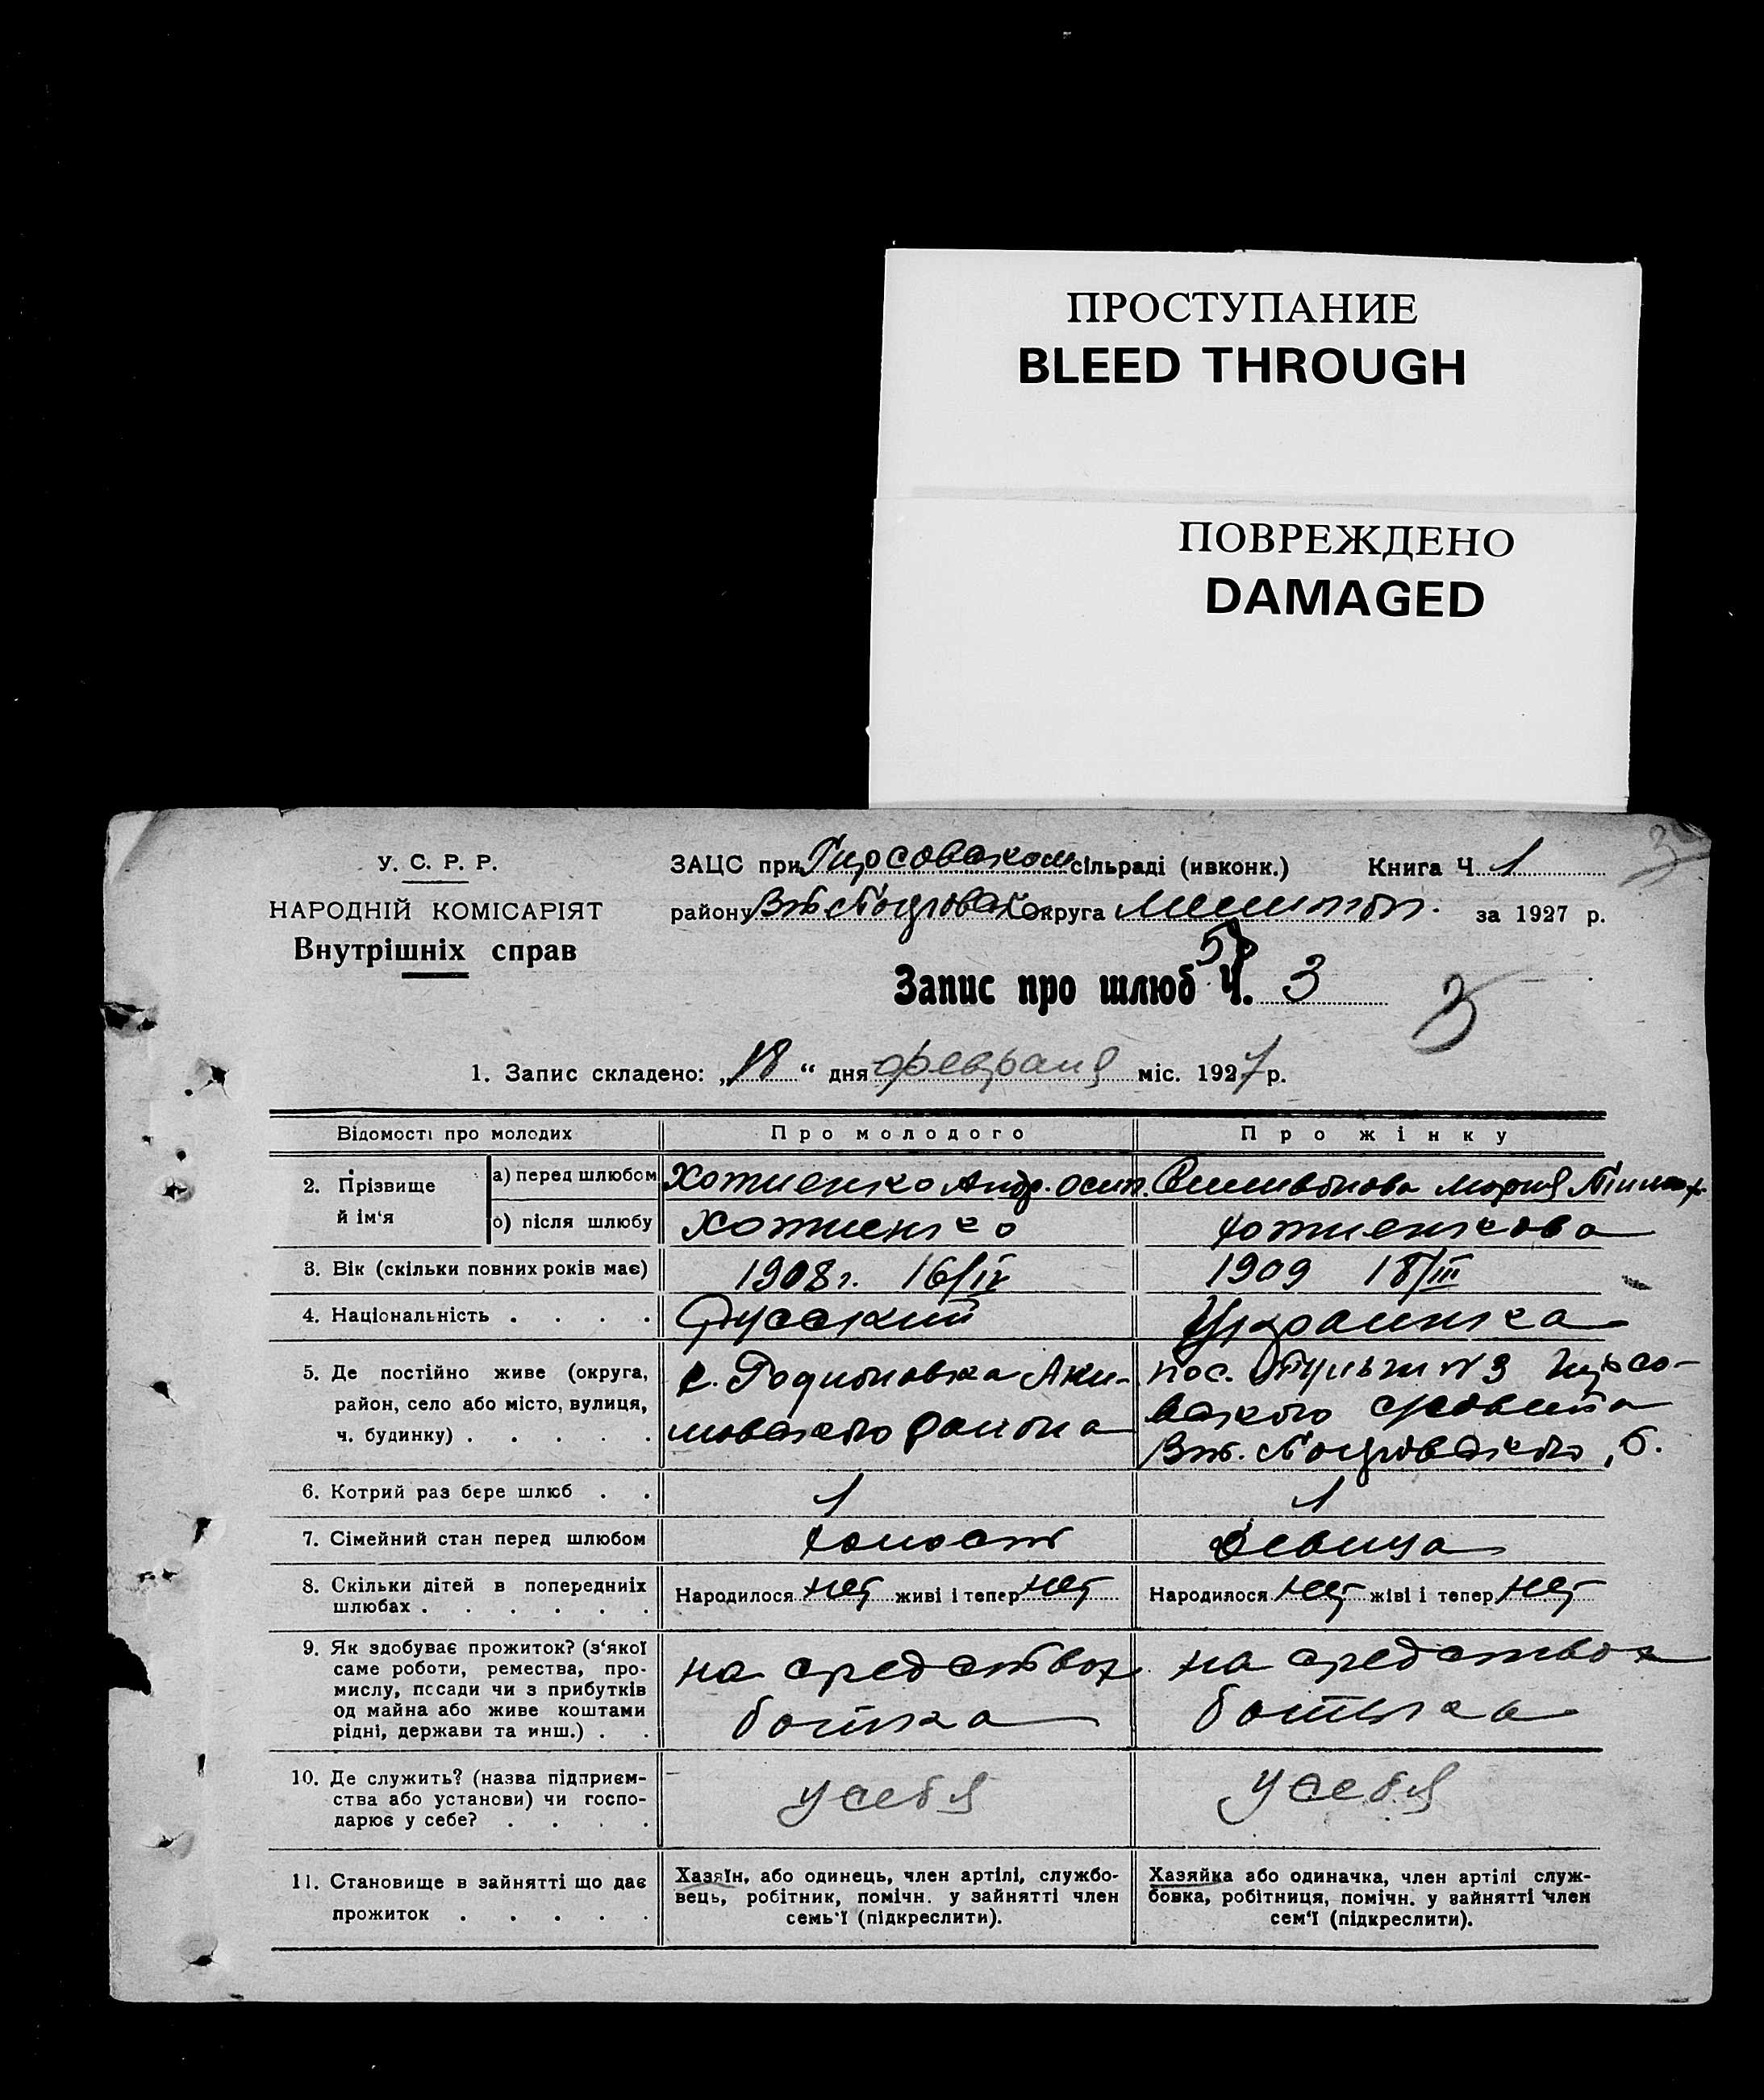 ПРОСТУПАНИЕ
BLEED THROUGH
ПОВРЕЖДЕНО
DAMAGED
У. С. Р. Р.
НАРОДНІЙ КОМІСАРІЯТ
Внутрішніх справ
ЗАЦС при Гирсовском сільраді (ивконк.) Книга Ч. 1
району округа Мелитоп. за 1927 р.
Запис про шлюб Ч. 3
1. Запис складено: „18“ дня февраля міс. 1927 р.
Відомості про молодих
Про молодого
Про жінку
2. Прізвище й ім'я
а) перед шлюбом
Хотиенко Андр. Осип.
Мория
о) після шлюбу
Хотиенко
Хотиенкова
3. Вік (скільки повних років має)
1908 г. 16/IV
1909 18/III
4. Національність . . . .
Русский
Украинка
5. Де постійно живе (округа,
район, село або місто, вулиця,
ч. будинку) . . . . .
с. Родионовка Аки-
мовского района
пос. №3 Гирсо-
вского
6. Котрий раз бере шлюб . .
1
1
7. Сімейний стан перед шлюбом
холост
девица
8. Скільки дітей в попередниіх
шлюбах . . . . . .
Народилося нет живі і тепер нет
Народилося нет жіві і тепер нет
9. Як здобуває прожиток? (з'якої
саме роботи, ремества, про-
мислу, посади чи з прибутків
од майна або живе коштами
рідні, держави та инш.) . .
на средствах
батька
на средствах
батька
10. Де служить? (назва підприєм-
ства або установи) чи госпо-
дарює у себе? . . . .
у себя
у себя
11. Становище в зайнятті що дає
прожиток . . . . .
Хазяїн, або одинець, член артілі, службо-
вець, робітник, помічн. у зайнятті член
семь'ї (підкреслити).
Хазяйка або одиначка, член артілі служ-
бовка, робітниця, помічн. у зайнятті член
сем'ї (підкреслити).